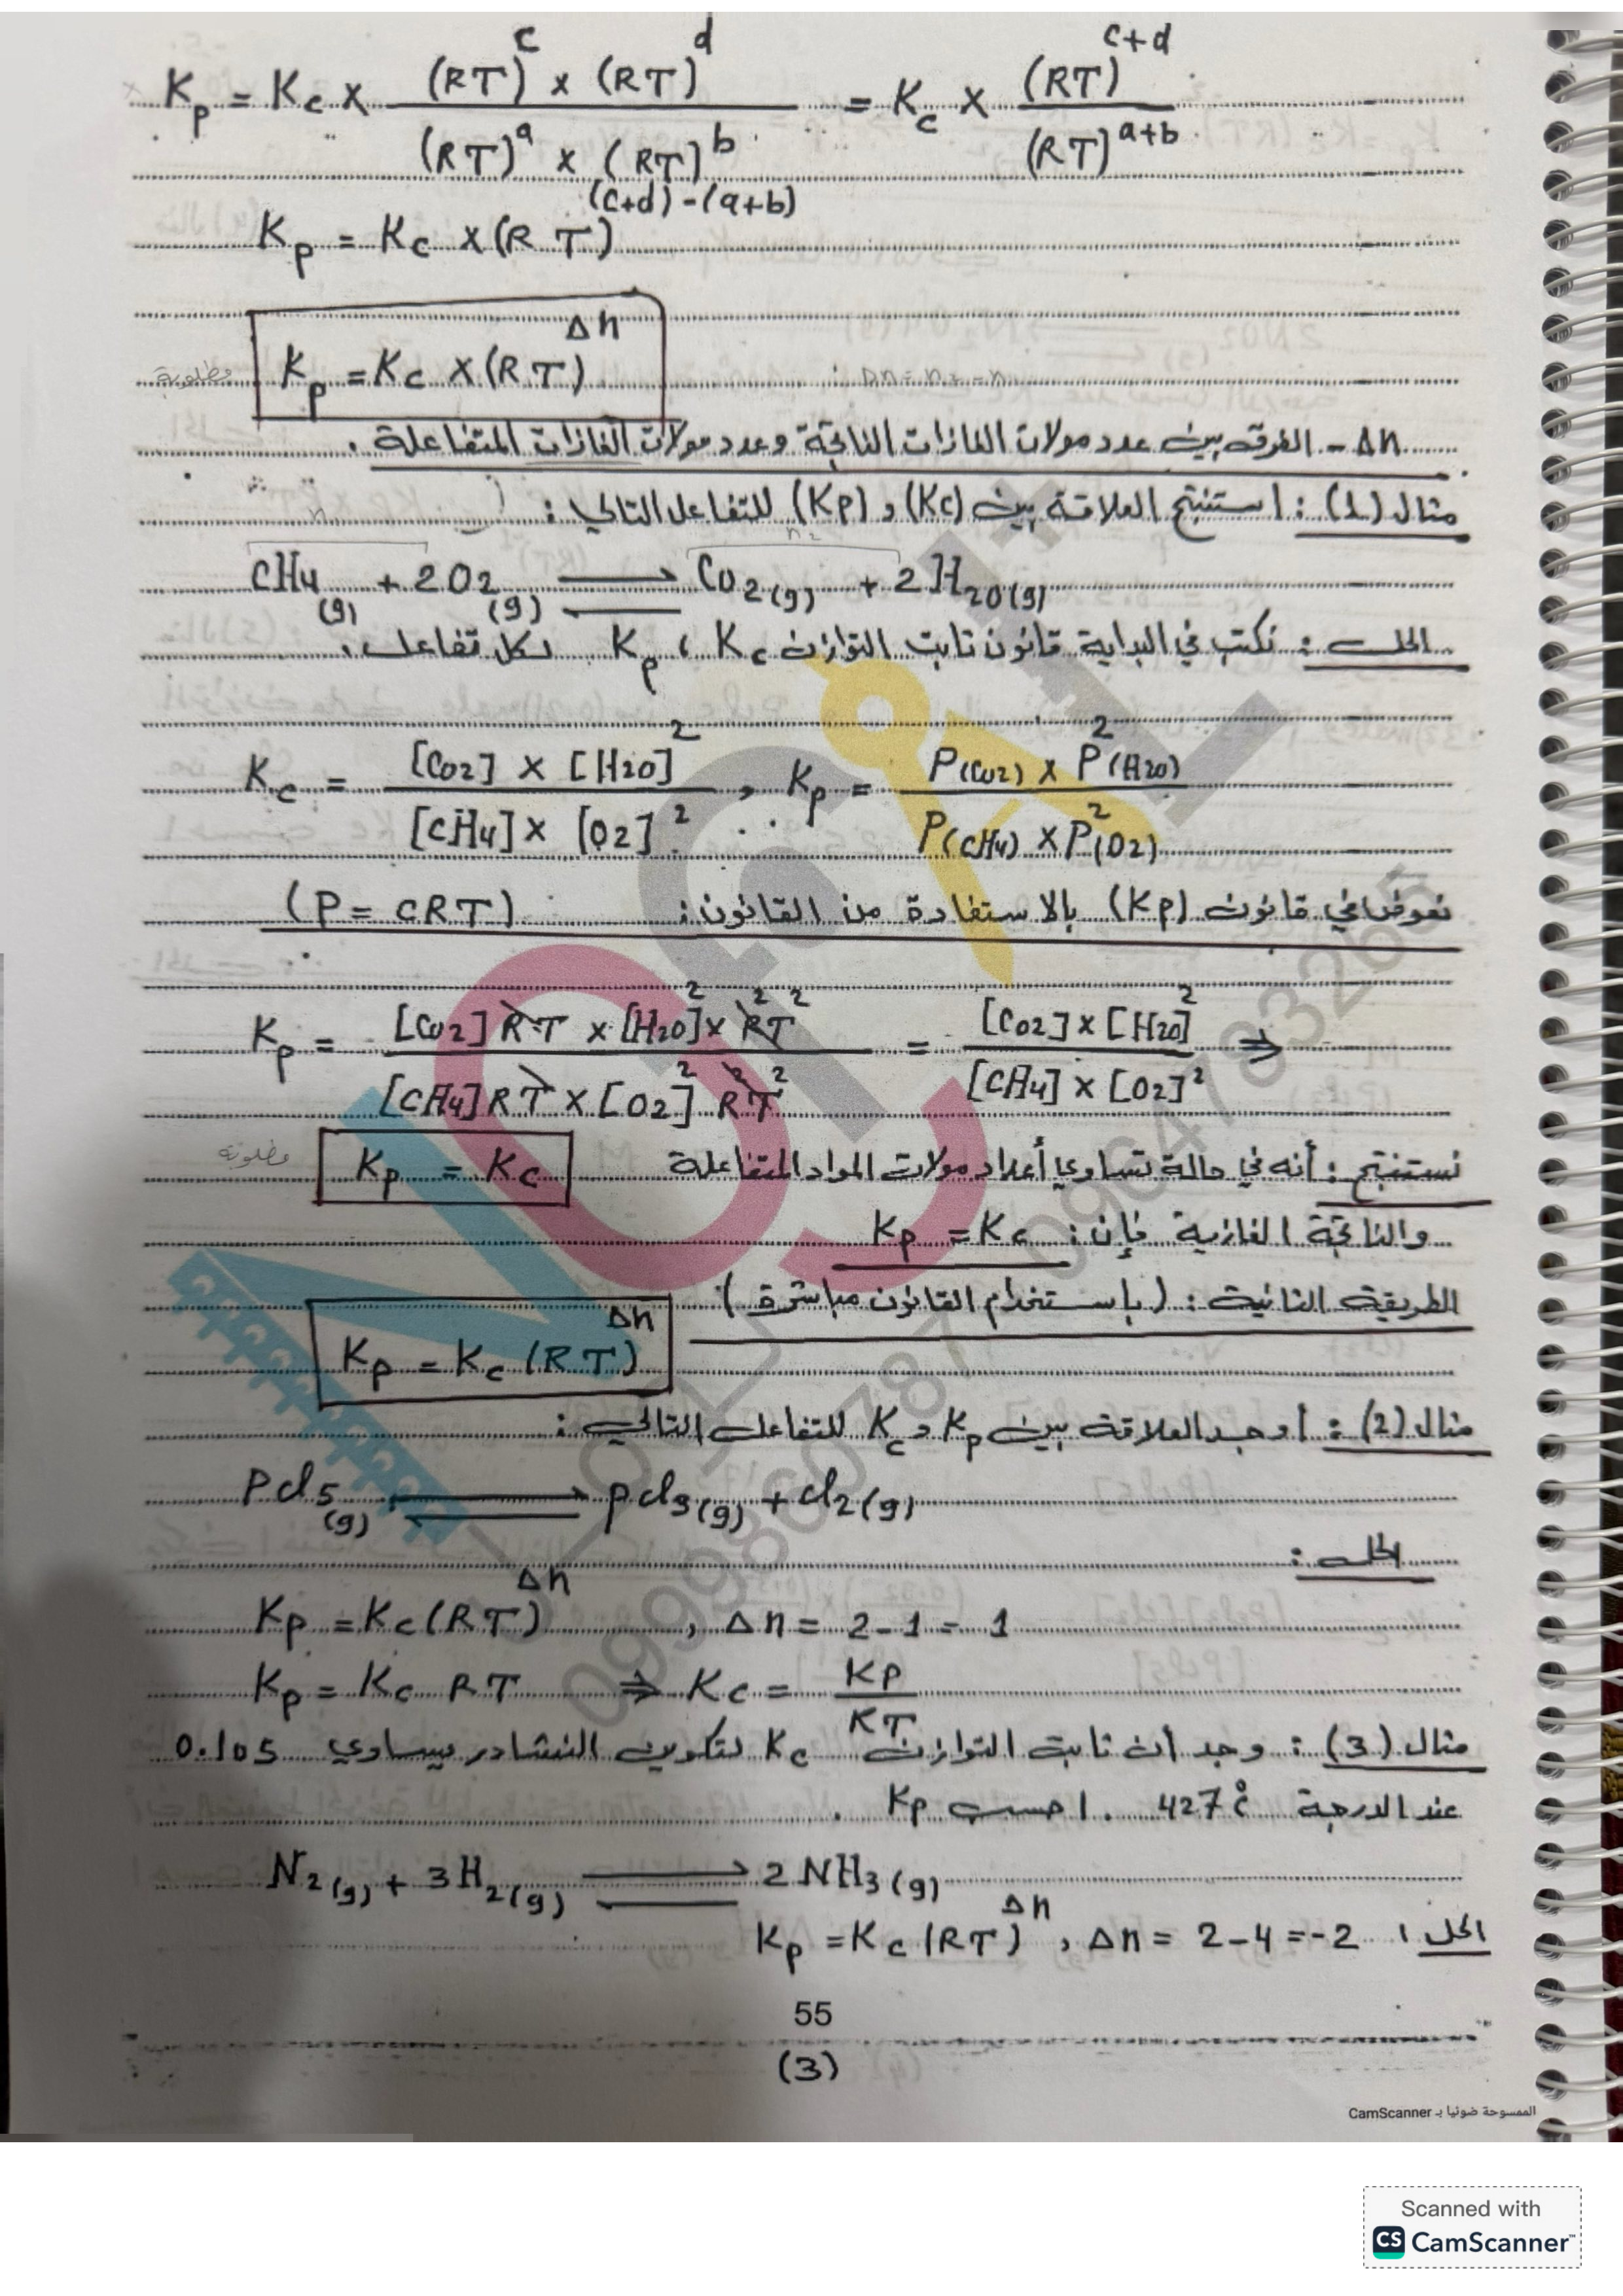 Kp = Kc × (RT)^c × (RT)^d / (RT)^a × (RT)^b = Kc × (RT)^c+d / (RT)^a+b
Kp = Kc × (RT)^(c+d)-(a+b)
Kp = Kc × (RT)^Δn
مطلوبة
Δn - الفرق بين عدد مولات الغازات الناتجة وعدد مولات الغازات المتفاعلة .
مثال (1) : استنتج العلاقة بين (Kc) و (Kp) للتفاعل التالي :
CH4(g) + 2O2(g) ⇌ CO2(g) + 2H2O(g)
الحل : نكتب في البداية قانون ثابت التوازن Kp ، Kc لكل تفاعل .
Kc = [CO2] × [H2O]^2 / [CH4] × [O2]^2 , Kp = P(CO2) × P^2(H2O) / P(CH4) × P^2(O2)
نعوض في قانون (Kp) بالاستفادة من القانون : (P = CRT)
Kp = [CO2] RT × [H2O]^2 × R^2T^2 / [CH4] RT × [O2]^2 R^2T^2 = [CO2] × [H2O]^2 / [CH4] × [O2]^2 ⇒
نستنتج : أنه في حالة تساوي أعداد مولات المواد المتفاعلة Kp = Kc مطلوبة
والناتجة الغازية فإن : Kp = Kc
الطريقة الثانية : (باستخدام القانون مباشرة)
Kp = Kc (RT)^Δn
مثال (2) : أوجد العلاقة بين Kp و Kc للتفاعل التالي :
PCl5(g) ⇌ PCl3(g) + Cl2(g)
الحل :
Kp = Kc (RT)^Δn , Δn = 2 - 1 = 1
Kp = Kc RT ⇒ Kc = KP / RT
مثال (3) : وجد أن ثابت التوازن Kc لتكوين النشادر يساوي 0.105
عند الدرجة 427 C° . احسب Kp .
N2(g) + 3H2(g) ⇌ 2NH3(g)
الحل : Kp = Kc (RT)^Δn , Δn = 2 - 4 = -2
55
(3)
الممسوحة ضوئيا بـ CamScanner
Scanned with
CS CamScanner™